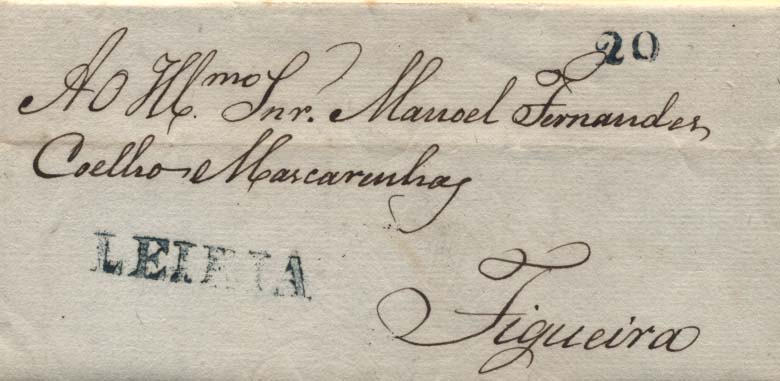 20
Ao Illmo. Snr. Manoel Fernandes
Coelho Mascarenhas
LEIRIA
Figueira